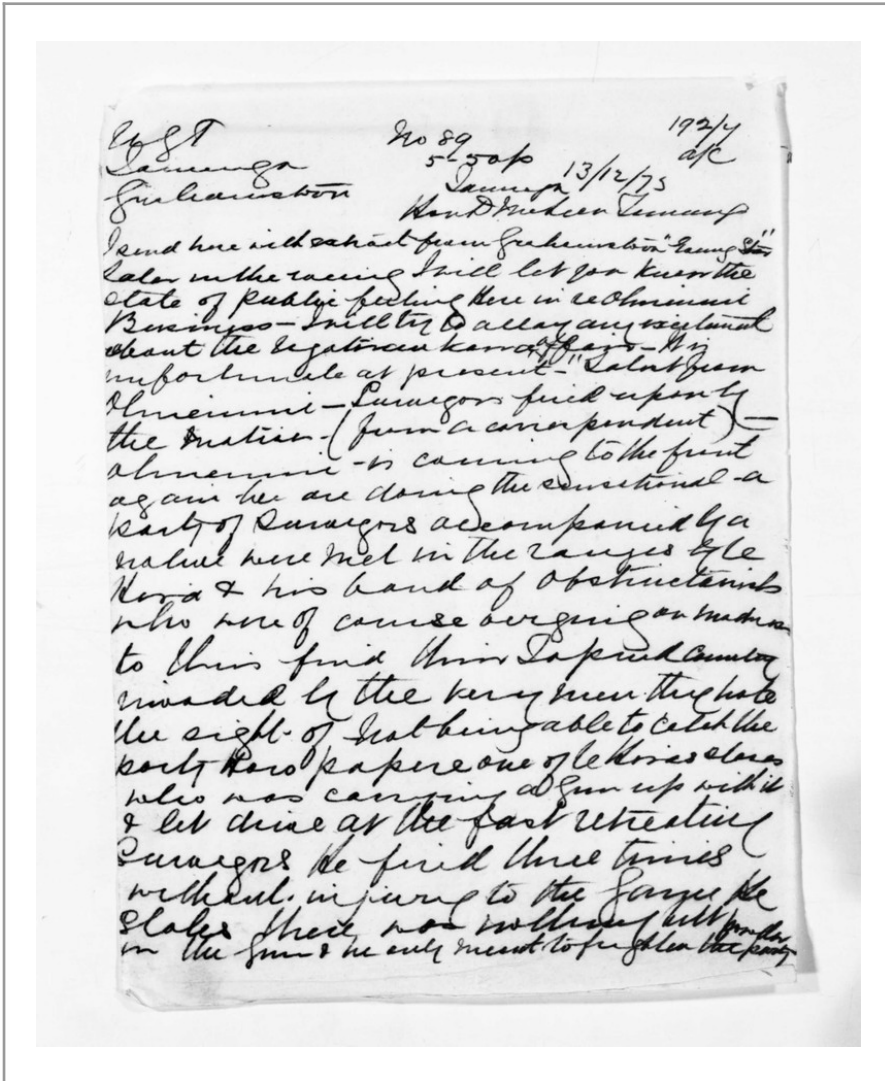 No 89 192/4
5-50 p a/c
Tauranga 13/12/75
Grahamstown
Hon D McLean
I send herewith extract from Grahamstown "Evening Star"
Later in the evening I will let you know the
state of public feeling here in re Ohinemuri
Business - I will try to allay any excitement
about the affair - It is
unfortunate at present - "Latest from
Ohinemuri - Surveyors fired upon by
the Natives - (from a correspondent) -
Ohinemuri - is coming to the front
again we are doing the sensational - a
party of Surveyors accompanied by a
native were met in the ranges by Te
Hira & his band of obstructionists
who were of course verging on madness
to thus find their Tapued Country
invaded by the very men they hate
the sight of Not being able to catch the
party one of Te Hiras slaves
who was carrying a Gun up with it
& let drive at the fast retreating
Surveyors He fired three times
without injury to the He
states there was nothing but powder
in the Gun & he only meant to frighten the party